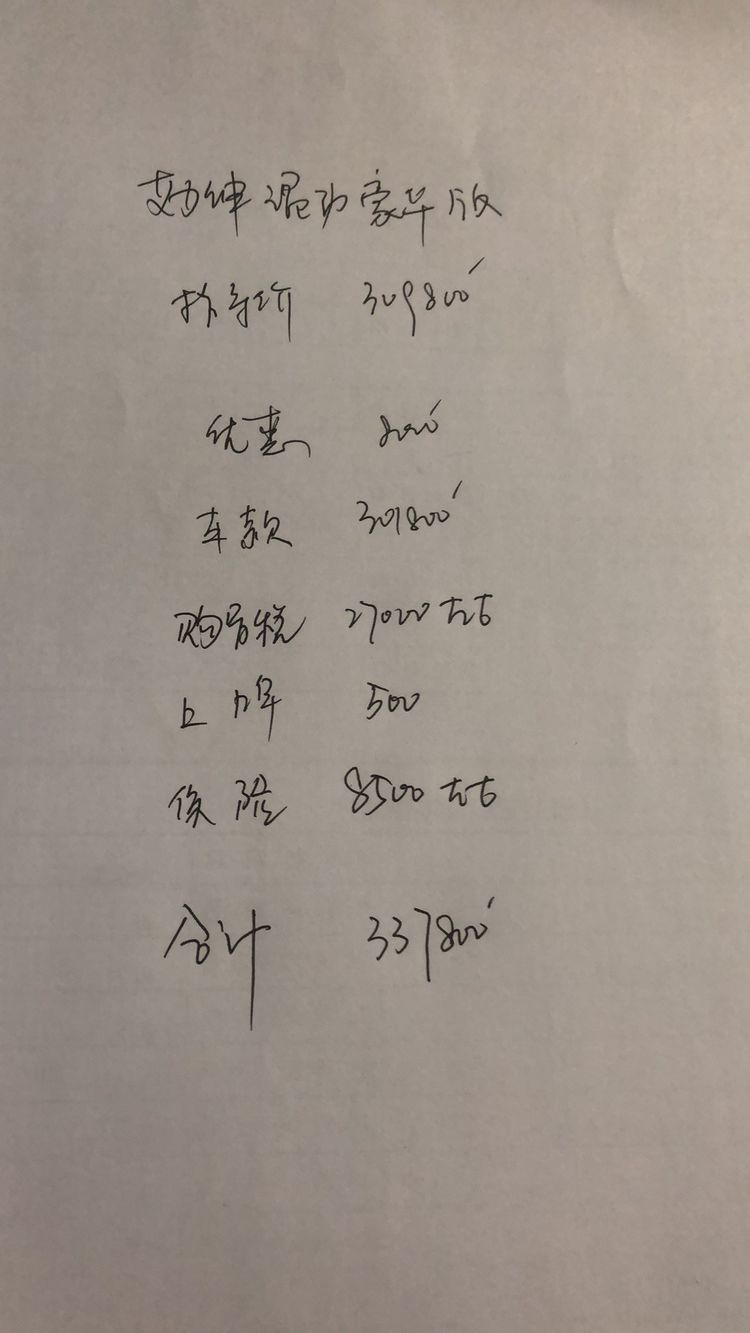 劲绅混动豪华版
指导价 309800
优惠 8000
车款 301800
购置税 27000左右
上牌 500
保险 8500左右
合计 337800